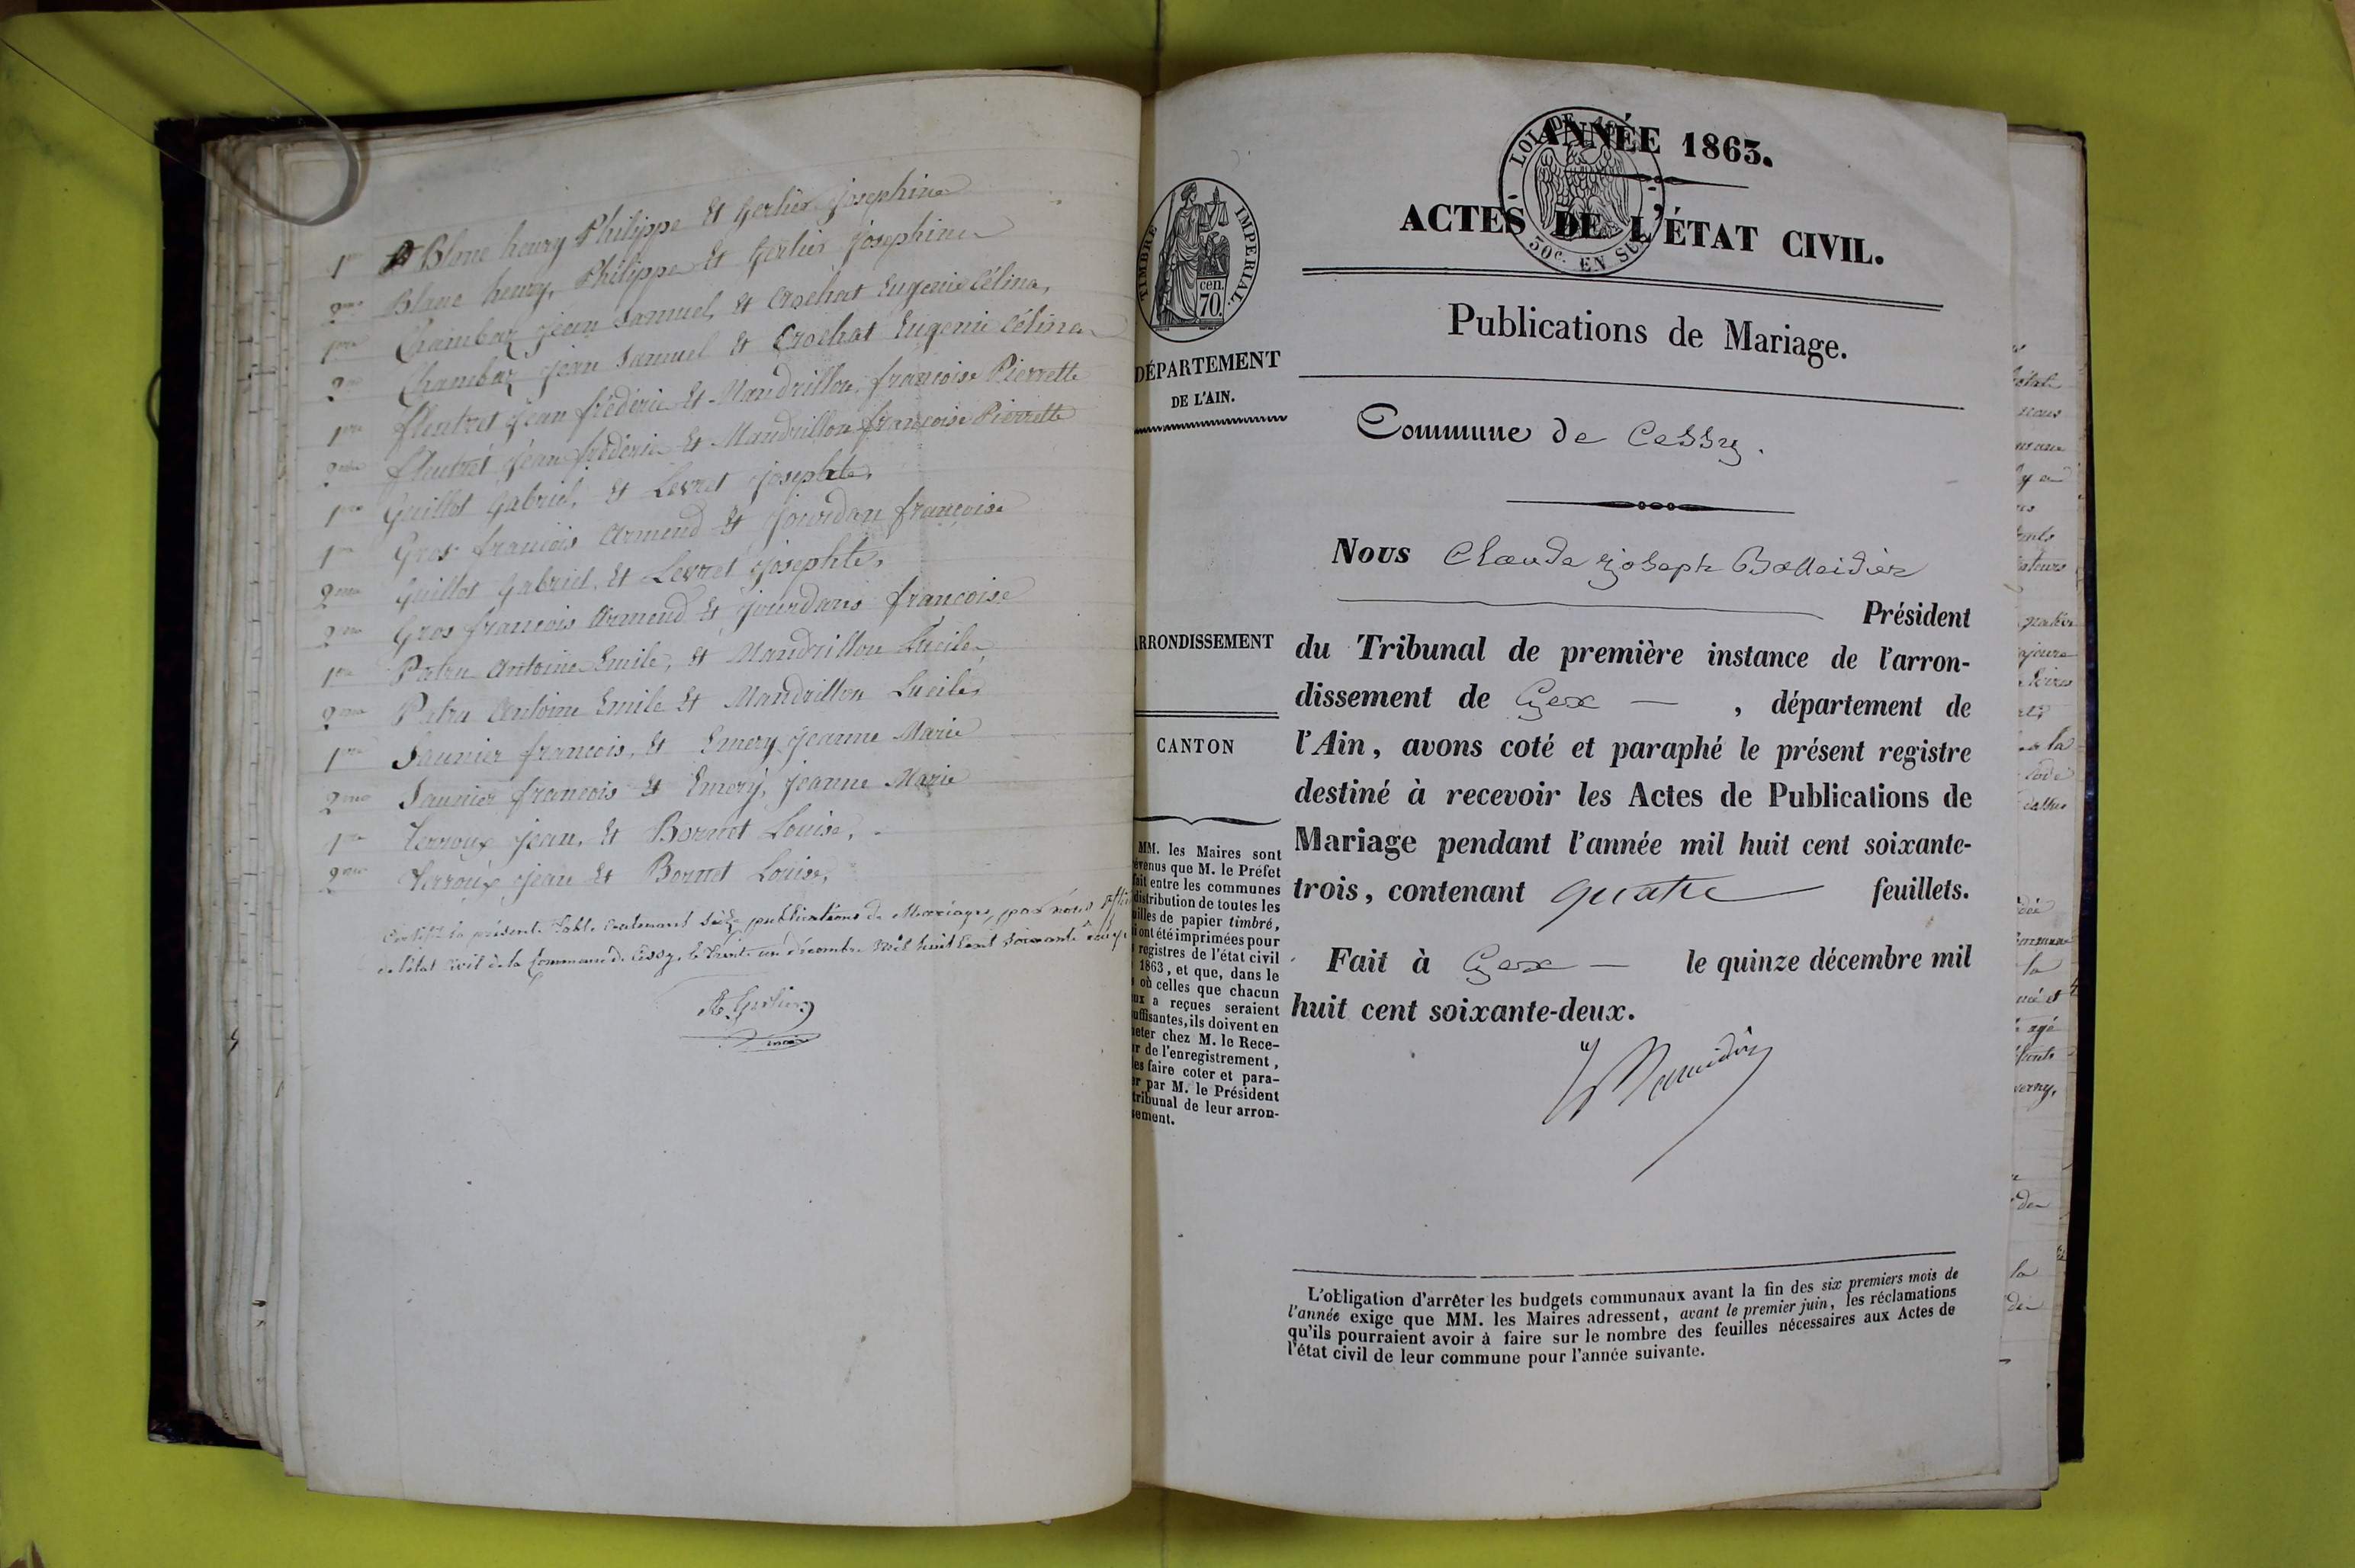 1re Blanc henry Philippe et Gerlier Josephine
2me Blanc henry, Philippe et Gerlier Josephine
1re Chambaz Jean Samuel, et Crochat Eugenie Célina,
2me Chambaz Jean Samuel et Crochat Eugenie Célina
1re fleutret Jean frédéric et Mandrillon, françoise Pierrette
2me fleutret Jean frédéric et Mandrillon françoise Pierrette
1re Guillot Gabriel, et Levret Josephte,
1re Gros francois Armend et Jourdan françoise
2me Guillot Gabriel, et Levret Josephte,
2me Gros francois Armend et Jourdans francoise
1re Patru Antoine Emile, et Mandrillon Lucile,
2me Patru Antoine Emile et Mandrillon Lucile,
1re Saunier francois, et Emery Jeanne Marie
2me Saunier francois et Emery, Jeanne Marie
1re Verroux Jean, et Bornet Louise,
2me Verroux Jean et Bornet Louise,
Certifié la présente Table contenant seize publications de Mariages, par nous
de l'état civil de la Commune de Cessy, le trente un décembre mil huit cent soixante
maire
ANNÉE 1863.
LOI DE
50c. EN SUS
ACTES DE L'ÉTAT CIVIL.
TIMBRE IMPERIAL.
cen.
70.
Publications de Mariage.
DÉPARTEMENT
DE L'AIN.
Commune de Cessy.
Nous Claude Joseph Balleidier
Président
ARRONDISSEMENT
du Tribunal de première instance de l'arron-
dissement de Gex — , département de
CANTON
l'Ain, avons coté et paraphé le présent registre
destiné à recevoir les Actes de Publications de
Mariage pendant l'année mil huit cent soixante-
trois, contenant quatre feuillets.
Fait à Gex — le quinze décembre mil
huit cent soixante-deux.
MM. les Maires sont
évenus que M. le Préfet
fait entre les communes
distribution de toutes les
uilles de papier timbré,
i ont été imprimées pour
registres de l'état civil
1863, et que, dans le
où celles que chacun
ux a reçues seraient
uffisantes, ils doivent en
heter chez M. le Rece-
r de l'enregistrement,
es faire coter et para-
er par M. le Président
tribunal de leur arron-
sement.
L'obligation d'arrêter les budgets communaux avant la fin des six premiers mois de
l'année exige que MM. les Maires adressent, avant le premier juin, les réclamations
qu'ils pourraient avoir à faire sur le nombre des feuilles nécessaires aux Actes de
l'état civil de leur commune pour l'année suivante.